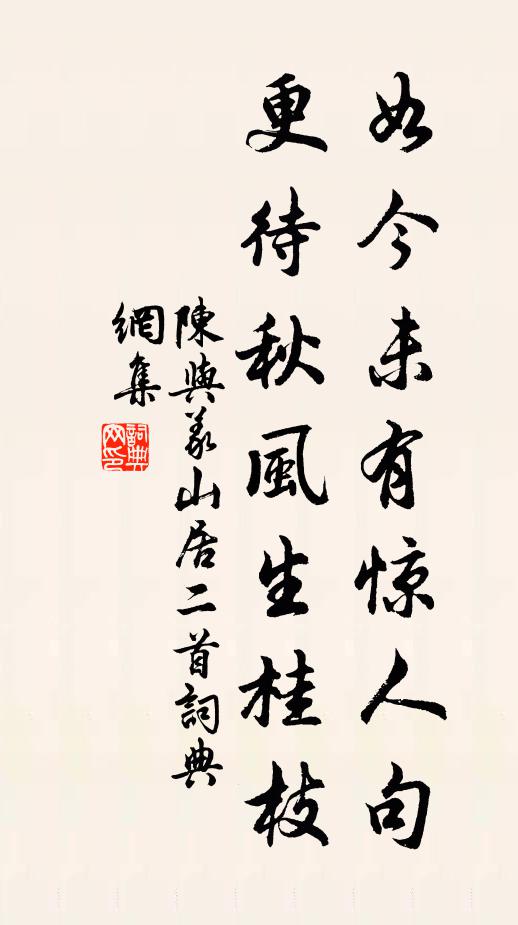 如今未有惊人句
更待秋風生桂枝
陳與義山居二首詞典
網集
詞典網印